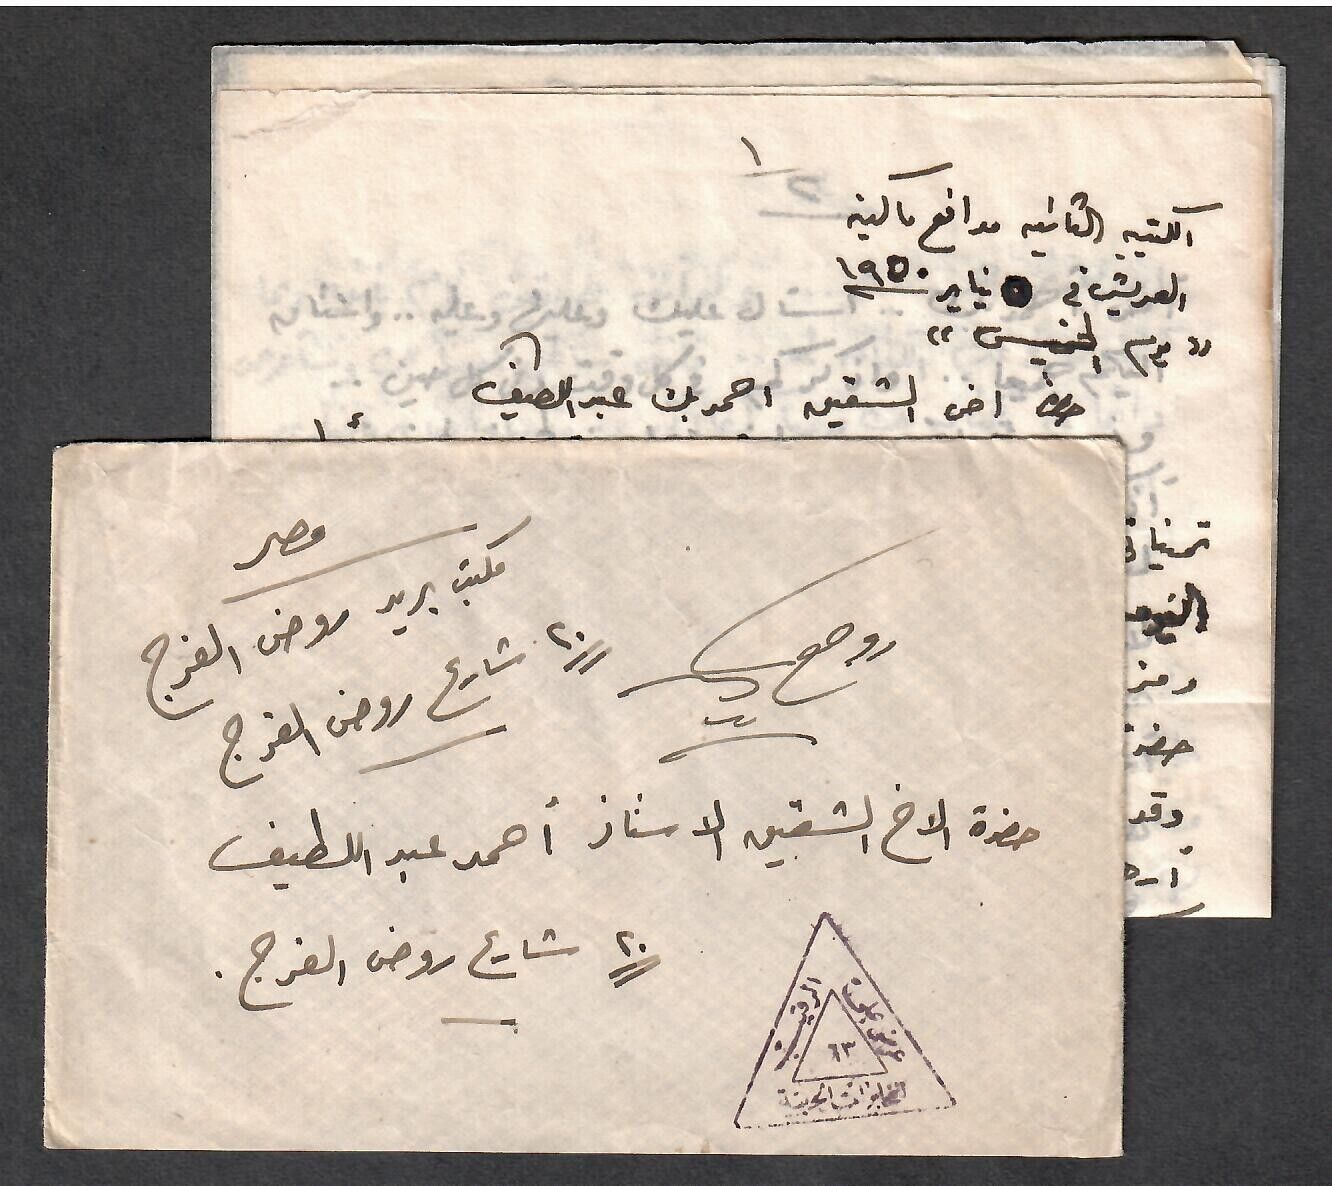 ١
الكتيبه الثانيه مدافع ماكينه
العريش في ٥ يناير ١٩٥٠
"يوم الخميس"
حضرة أخى الشقيق احمد بك عبد اللطيف
تمنياتى
ومنز
حضرة
وقد
مصر
مكتب بريد روض الفرج
٢٠ شارع روض الفرج
حضرة الاخ الشقيق الاستاذ أحمد عبد اللطيف
٢٠ شارع روض الفرج .
عرض على الرقيب
٦٣
المخابرات الحربية